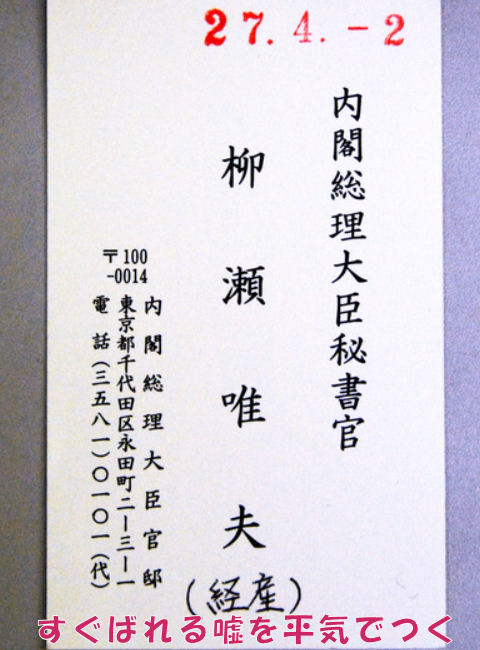 27.4.-2
内閣総理大臣秘書官
柳瀬唯夫
(経産)
〒100
-0014
内閣総理大臣官邸
東京都千代田区永田町二ー三ー一
電話(三五八一)〇一〇一(代)
すぐばれる嘘を平気でつく